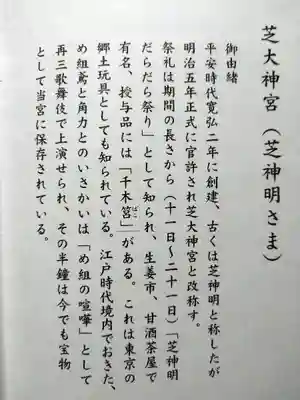 芝大神宮(芝神明さま)
御由緒
平安時代寛弘二年に創建、古くは芝神明と称したが
明治五年正式に官許され芝大神宮と改称す。
祭礼は期間の長さから(十一日〜二十一日)「芝神明
だらだら祭り」として知られ、生姜市、甘酒茶屋で
有名、授与品には「千木筥」がある。これは東京の
郷土玩具としても知られている。江戸時代境内でおきた、
め組鳶と角力とのいさかいは「め組の喧嘩」として
再三歌舞伎で上演せられ、その半鐘は今でも宝物
として当宮に保存されている。